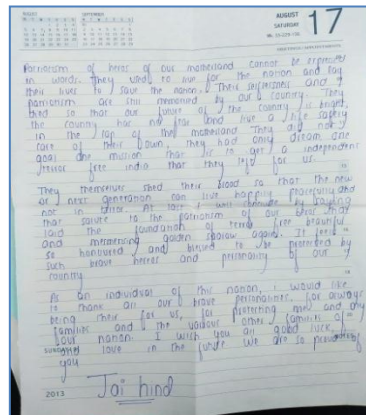 AUGUST
SATURDAY
17
Patriotism of heros of our motherland cannot be expressed
in words. They used to live for the nation and lay
their lives to save the nation. Their selflessness and
patriotism are still memorised by our country. They
died so that our future of the country is bright,
the country has no fear and live a life safely
in the lap of the motherland They did not
care of their own, they had only dream one
goal one mission that is to get a independent
terror free india that they left for us.
They themselves shed their blood so that the new
or next generation can live happily peacefully and
not in terror. At last I will conclude by saying
that salute to the patriotism of our that
laid the foundation of terror free beautiful
and mesmerising golden sparrow again. It feels
so honoured and blessed to be protected by
such brave heros and personality of our
country
As an individual of this nation, i would like
to thank all our brave personalities, for always
being their for us, for protecting me, and my
families and the various other families of
our nation. I wish you all good luck,
SUNDAY
and love in the future we are so proud of
you
Jai hind
2013